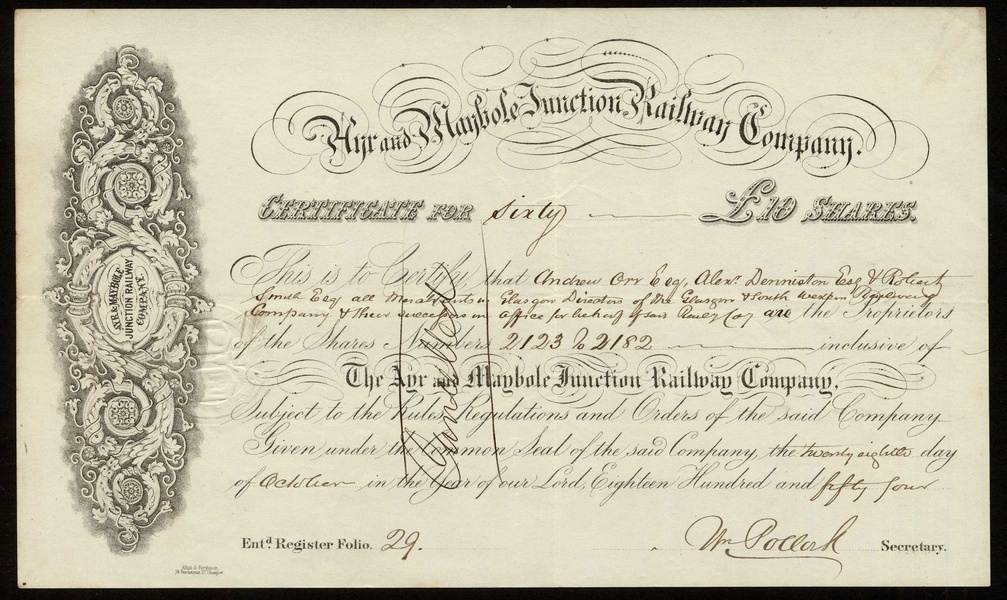 Ayr and Maybole Junction Railway Company.
Certificate for Sixty £10 Shares.
This is to Certify, that Andrew Orr Esq, Alexr. Dennistoun Esq & Robert
Smith Esq all Merchants in Glasgow Directors of the Glasgow & South Western Railway
Company & their successors in office for behoof of said Railwy Coy are the Proprietors
of the Shares Numbers 2123 to 2182 inclusive of
The Ayr and Maybole Junction Railway Company,
Subject to the Rules Regulations and Orders of the said Company.
Given under the Common Seal of the said Company, the twenty eighth day
of October in the Year of our Lord, Eighteen Hundred and fifty four
Entd Register Folio. 29. Wm Pollock Secretary.
Cancelled
AYR & MAYBOLE
JUNCTION RAILWAY
COMPANY.